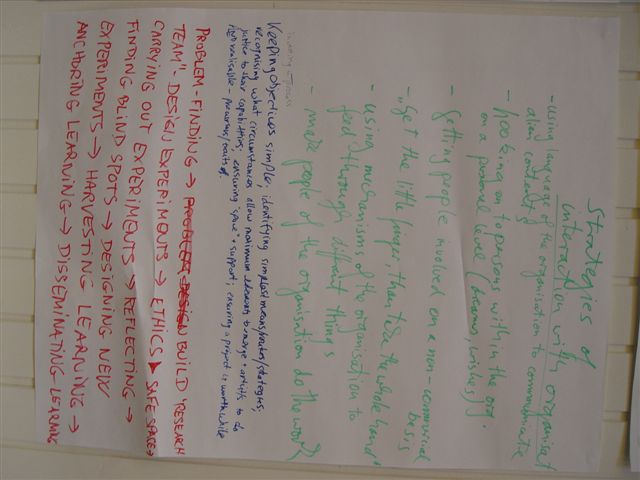 Strategies of
interaction with organisat
- using language of the organisation to communicate
alien content
- hooking on to persons within the org.
on a personal level (dreams, wishes)
- getting people involved on a non-commercial
basis
- "get the little finger, than take the whole hand"
- using mechanisms of the organisation to
feed through different things
- make people of the organisation do the work
Keeping objectives simple, identifying simplest means/routes/strategies,
recognising what circumstances allow maximum elements to merge + artists to do
justice to their capabilities; ensuring 'space' + support; ensuring a project is worthwhile
AND realisable -
PROBLEM-FINDING → PROBLEM DESIGN BUILD "RESEARCH
TEAM" - DESIGN EXPERIMENTS → ETHICS → SAFE SPACE →
CARRYING OUT EXPERIMENTS → REFLECTING →
FINDING BLIND SPOTS → DESIGNING NEW
EXPERIMENTS → HARVESTING LEARNING →
ANCHORING LEARNING → DISSEMINATING LEARNING